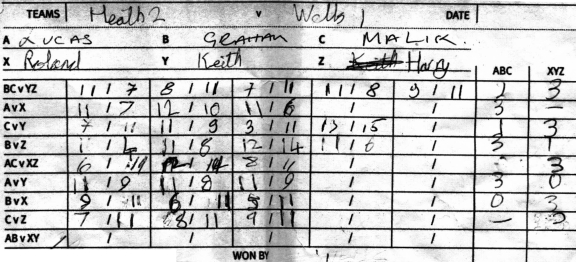 TEAMS Heath 2 v Wells 1 DATE
A LUCAS B GRAHAM C MALIK.
X Roland Y Keith Z Harry
ABC XYZ
BCvYZ 11 / 7 8 / 11 7 / 11 11 / 8 9 / 11 2 3
AvX 11 / 7 12 / 10 11 / 6 / / 3 —
CvY 7 / 11 11 / 9 3 / 11 13 / 15 / 1 3
BvZ 11 / 4 11 / 8 12 / 14 11 / 6 / 3 1
ACvXZ 6 / 11 12 / 14 8 / 11 / / - 3
AvY 11 / 9 11 / 8 11 / 9 / / 3 0
BvX 9 / 11 6 / 11 5 / 11 / / 0 3
CvZ 7 / 11 8 / 11 9 / 11 / / — 3
ABvXY / / / / /
WON BY